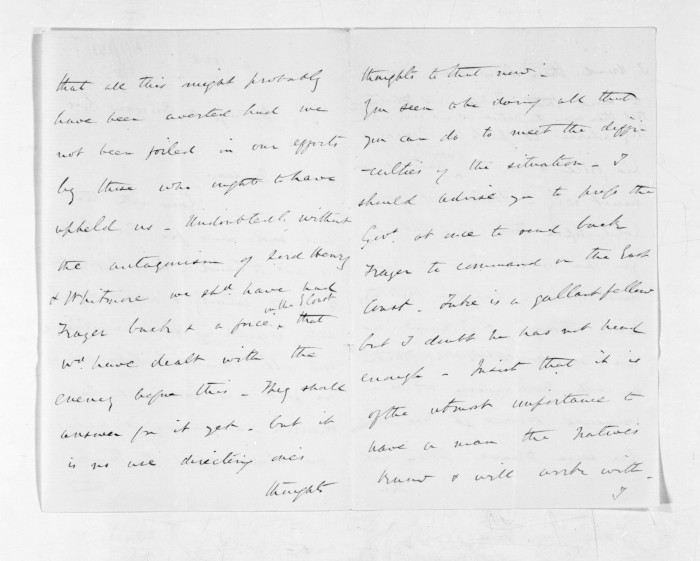 that all this might probably
have been averted had we
not been foiled in our efforts
by those who ought to have
upheld us - Undoubtedly without
the antagonism of Lord Henry
& Whitmore we shd. have had
Frazer back & a force on the E Coast that
wd. have dealt with the
enemy before this - They shall
answer for it yet - but it
is no use directing one's
thoughts
thoughts to that now -
You seem to be doing all that
you can do to meet the diffi-
-culties of the situation - I
should advise you to press the
Govt. at once to send back
Frazer to command on the East
Coast - Tuke is a gallant fellow
but I doubt he has not head
enough - Insist that it is
of the utmost importance to
have a man the Natives
know & will work with -
I